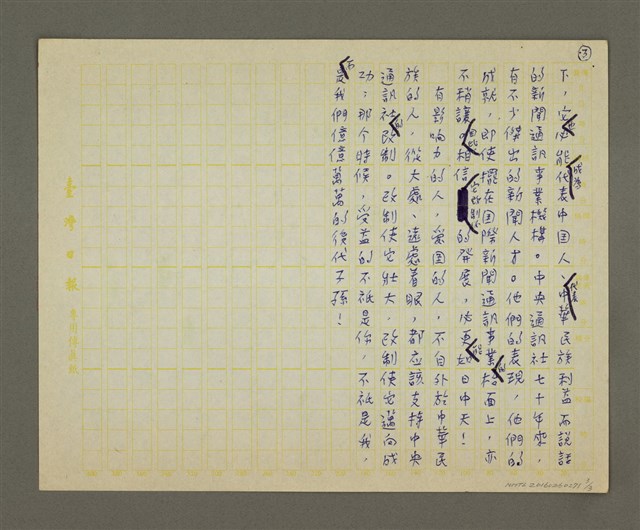 ③
下，它必能代表中国人、中華民族利益而說話
的新聞通訊事業機構。中央通訊社七十年來，
有不少傑出的新聞人才。他們的表現，他們的
成就，即使擺在国際新聞通訊事業枱面上，亦
不稍讓。相信 的發展，必更如日中天！
有影响力的人，爱国的人，不自外於中華民
族的人，從大處、遠處着眼，都应該支持中央
通訊社改制。改制使它壯大，改制使它邁向成
功：那个時候，受益的不祇是你，不祇是我，
是我們億億萬萬的後代子孫！
也
成為
代表
的
能
的
而
臺灣日報
專用稿紙